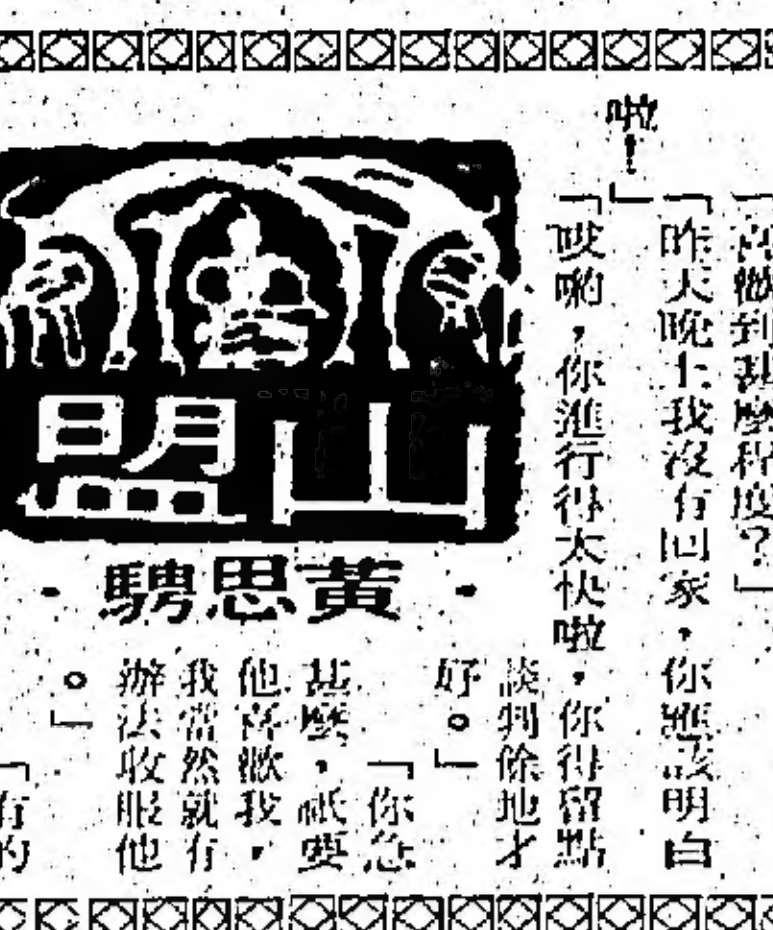 喜歡到甚麼程度？」
「昨天晚上我沒有回家，你應該明白
啦！」
「哎喲，你進行得太快啦，你得留點
談判餘地才
好。」
山盟
·黃思騁·
「你急
甚麼，祇要
他喜歡我，
我當然就有
辦法收服他
。」
「有的